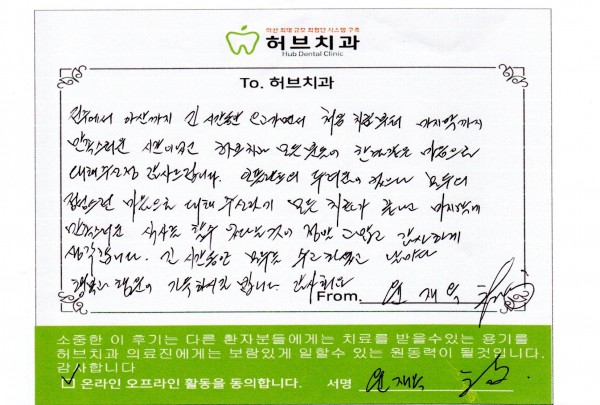 아산 최대 규모 최첨단 시스템 구축
허브치과
Hub Dental Clinic
To. 허브치과
진주에서 아산까지 긴 시간동안 오고가면서 처음 치료부터 마지막까지
만족스러운 시간이었던 허브치과 모든 분들이 한결같은 마음으로
대해주셔서 감사드립니다. 모두
정성스런 마음으로 대해 주시고 모든 치료가 끝나고 마지막에
만족스러운 식사를 할수 있다는것이 정말 그립고 감사하게
생각합니다. 긴 시간동안 모두들 수고하셨고 날마다
행복과 행운이 가득하시길 빕니다. 감사해요
From. 원재욱
소중한 이 후기는 다른 환자분들에게는 치료를 받을수있는 용기를
허브치과 의료진에게는 보람있게 일할수 있는 원동력이 될것입니다.
감사합니다
온라인 오프라인 활동을 동의합니다. 서명 원재욱